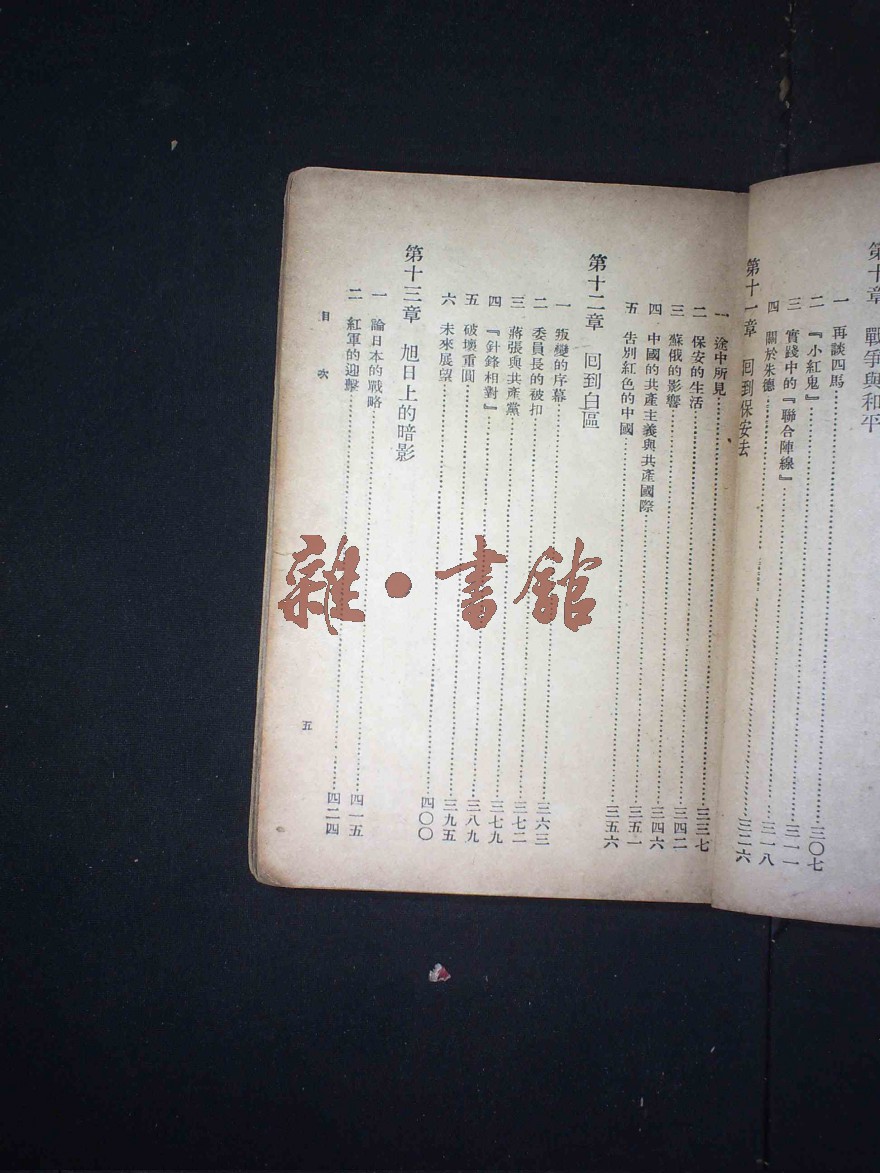 第十章 戰爭與和平
一 再談四馬 三〇七
二 『小紅鬼』 三一一
三 實踐中的『聯合陣線』 三一八
四 關於朱德 三二六
第十一章 回到保安去
一 途中所見 三三七
二 保安的生活 三四二
三 蘇俄的影響 三四六
四 中國的共產主義與共產國際 三五一
五 告別紅色的中國 三五六
第十二章 回到白區
一 叛變的序幕 三六三
二 委員長的被扣 三七二
三 蔣張與共產黨 三七九
四 『針鋒相對』 三八九
五 破壞重圓 三九五
六 未來展望 四〇〇
第十三章 旭日上的暗影
一 論日本的戰略 四一五
二 紅軍的迎擊 四二四
目次
五
雜·書館